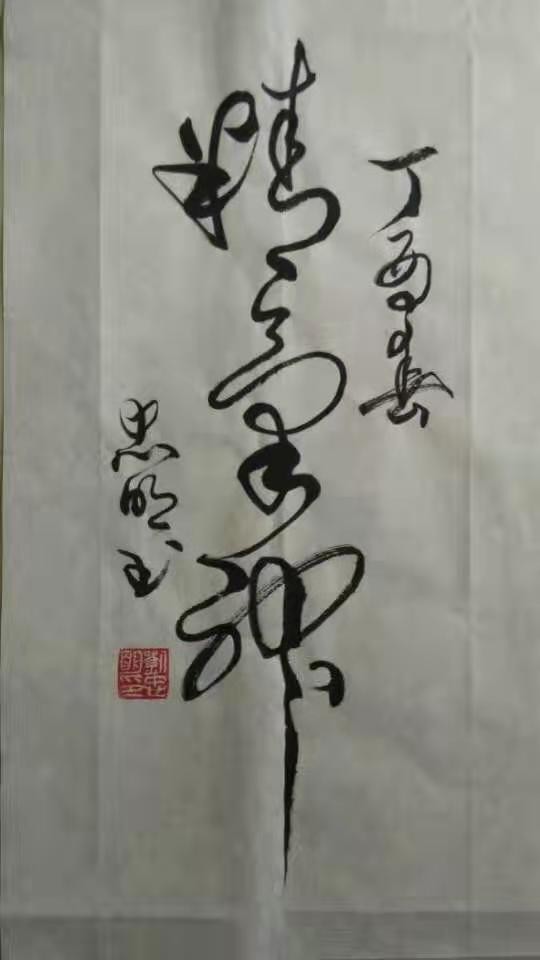 丁酉春
精氣神
忠明玉
劉忠明印